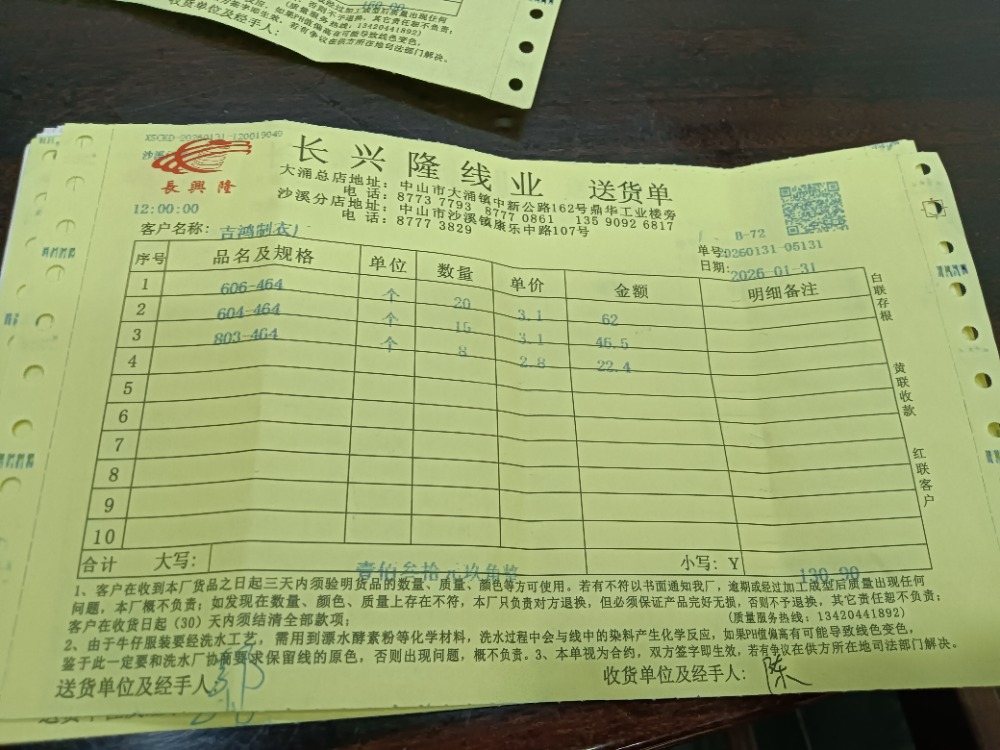 160.00
(质量服务热线：13420441892)
收货单位及经手人：
XSCKD-20260131-120019049
沙溪
長興隆
长兴隆线业 送货单
大涌总店地址：中山市大涌镇中新公路162号鼎华工业楼旁
电话：8773 7793 8777 0861 135 9092 6817
沙溪分店地址：中山市沙溪镇康乐中路107号
电话：8777 3829
12:00:00
客户名称：吉鸿制衣厂
B-72
单号：20260131-05131
日期：2026-01-31
序号 品名及规格 单位 数量 单价 金额 明细备注
1 606-464 个 20 3.1 62
2 604-464 个 15 3.1 46.5
3 803-464 个 8 2.8 22.4
4
5
6
7
8
9
10
白联存根
黄联收款
红联客户
合计 大写：壹佰叁拾元玖角整 小写：Y 130.90
1、客户在收到本厂货品之日起三天内须验明货品的数量、质量、颜色等方可使用。若有不符以书面通知我厂，逾期或经过加工成型后质量出现任何
问题，本厂概不负责；如发现在数量、颜色、质量上存在不符，本厂只负责对方退换，但必须保证产品完好无损，否则不予退换，其它责任恕不负责；
客户在收货日起（30）天内须结清全部款项； (质量服务热线：13420441892)
2、由于牛仔服装要经洗水工艺，需用到漂水酵素粉等化学材料，洗水过程中会与线中的染料产生化学反应，如果PH值偏高有可能导致线色变色，
鉴于此一定要和洗水厂协商要求保留线的原色，否则出现问题，概不负责。3、本单视为合约，双方签字即生效，若有争议在供方所在地司法部门解决。
送货单位及经手人： 收货单位及经手人：陈